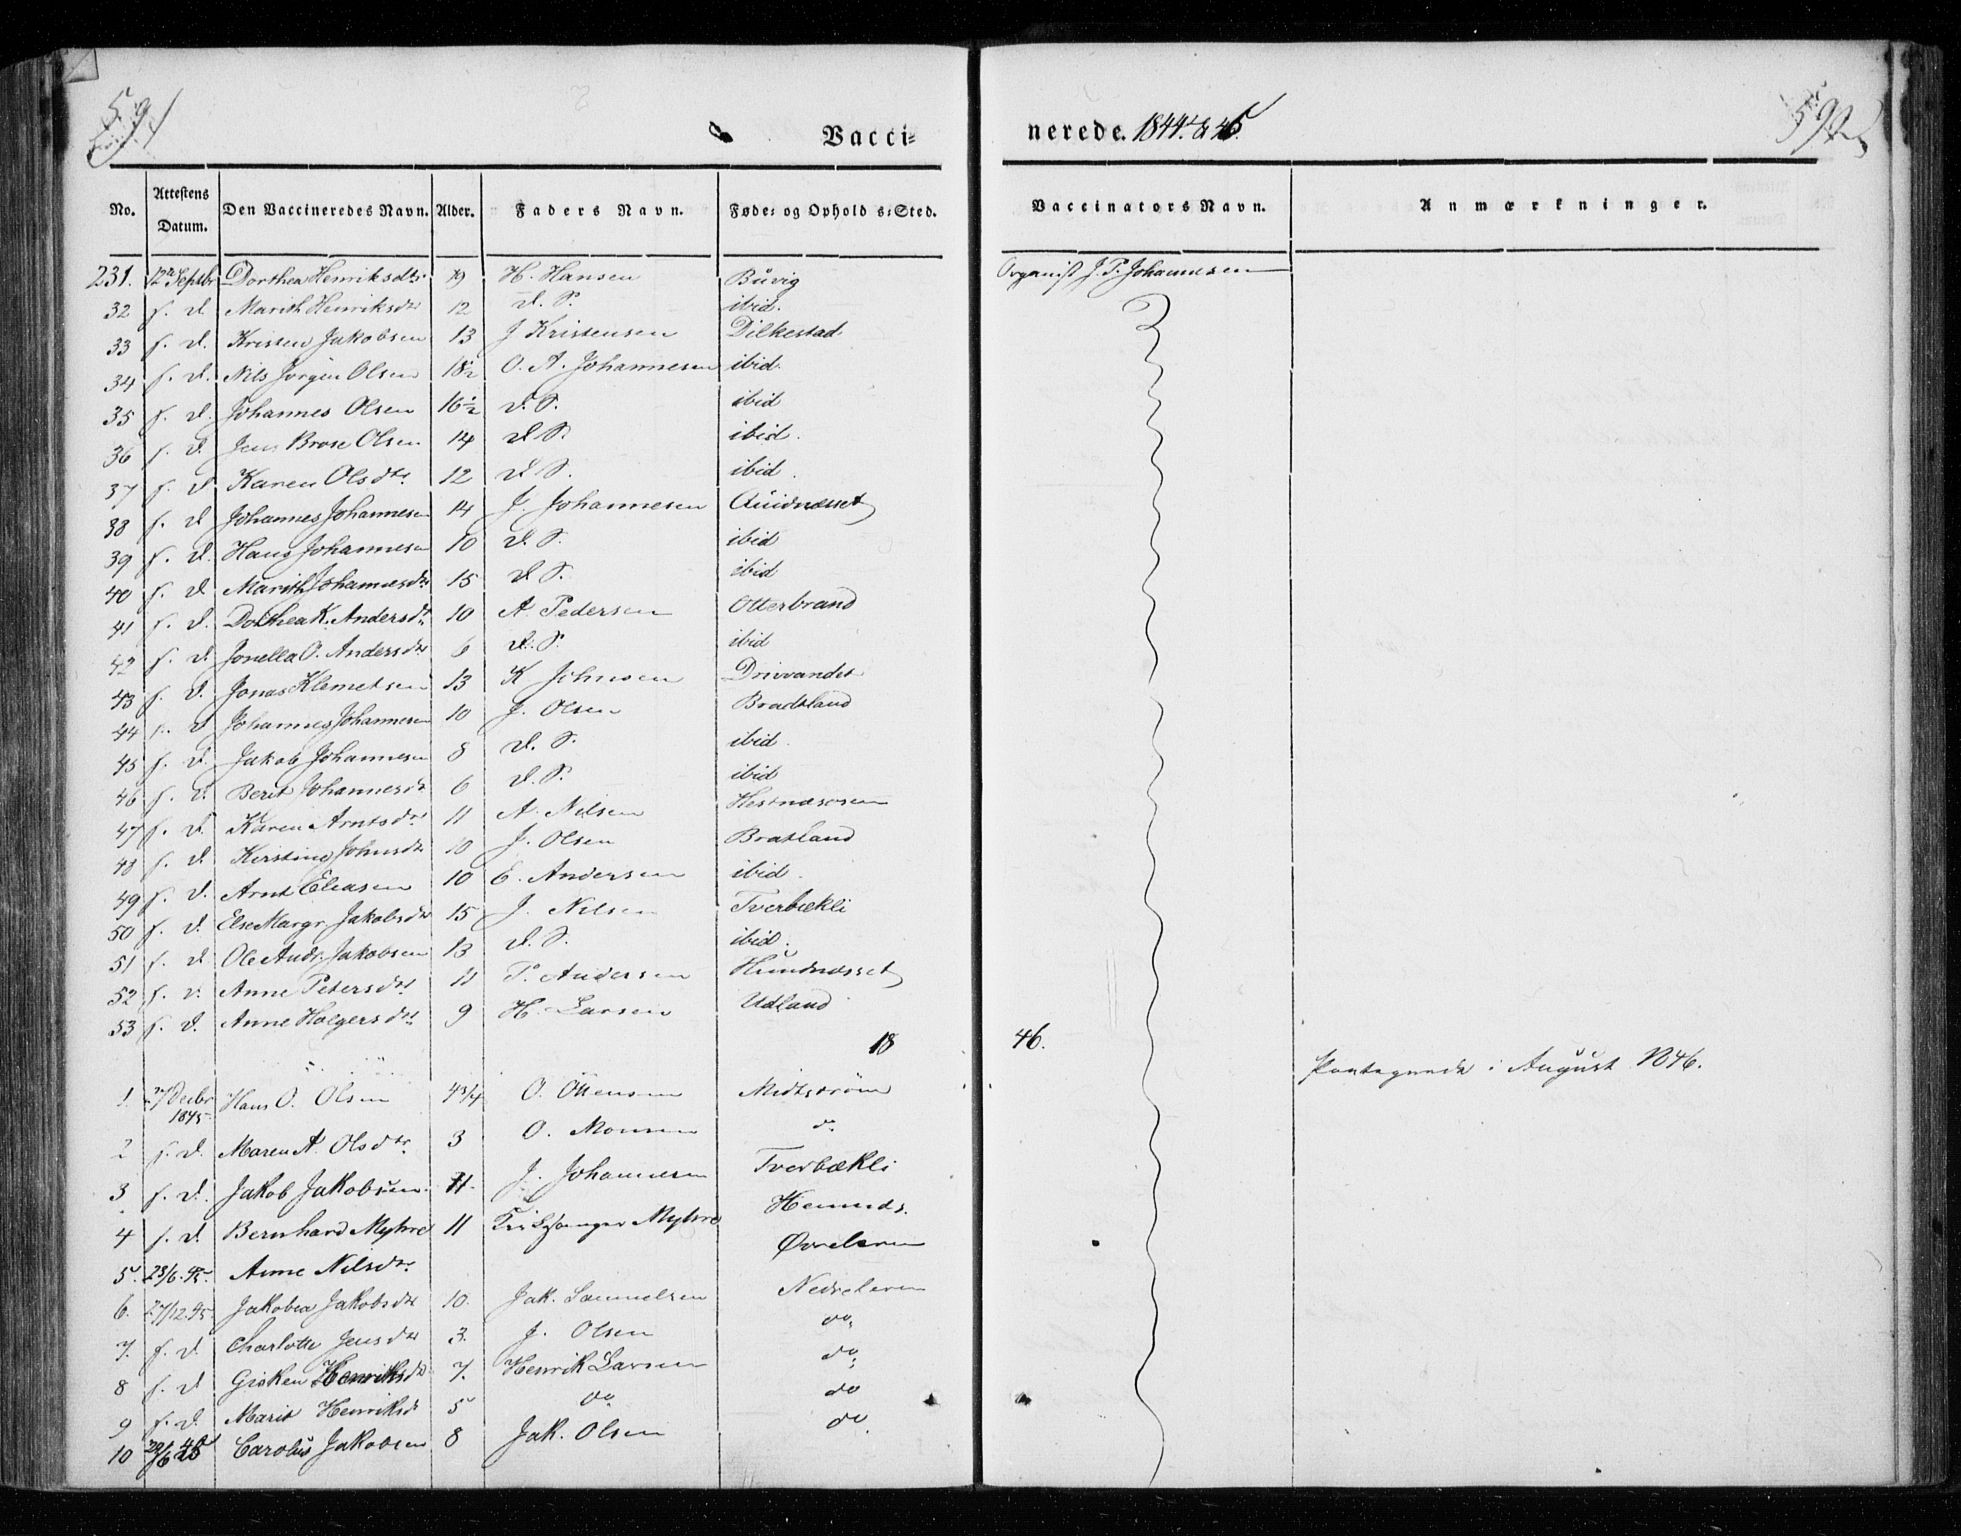 591
Vacci-
nerede. 1844 & 45.
592
No. Attestens Datum. Den Vaccineredes Navn. Alder. Faders Navn. Føde- og Opholds-Sted. Vaccinators Navn. Anmærkninger.
231. 12te Septbr Dorthea Henriksdtr 19 H. Hansen Buvig Organist J. P. Johannesen
32 s. d. Marith Henriksdtr 12 d. S. ibid.
33 s. d. Kristen Jakobsen 13 J Kristensen Dilkestad
34 s. d. Nils Jørgen Olsen 18½ O. A. Johannesen ibid.
35 s. d. Johannes Olsen 16½ d. S. ibid
36 s. d. Jens Brose Olsen 14 d S. ibid.
37 s. d Karen Olsdtr 12 d S. ibid.
38 s. d Johannes Johannesen 14 J. Johannesen Quidnæsset
39 s. d. Hans Johannesen 10 d. S. ibid
40 s. d Marith Johannesdtr 15 d S. ibid
41 s. d. Dorthea K. Andersdtr 10 A Pedersen Otterbrand
42 s. d. Jonella O. Andersdtr 6 d. S. ibid
43 s. d. Jonas Klemetsen 13 K Johnsen Drivvandet
44 s. d Johannes Johannesen 10 J. Olsen Bradtland
45 s. d. Jakob Johannesen 8 d. S. ibid.
46 s. d. Berit Johannesdtr 6 d. S. ibid
47 s. d. Karen Arntsdtr 11 A. Nilsen Hestnæsosen
48 s. d. Kirstine Johnsdtr 10 J. Olsen Bratland
49 s. d. Arnt Eleasen 10 E. Andersen ibid.
50 s. d. Else Margr. Jakobsdtr 15 J. Nilsen Tverbækli
51 s. d Ole Andr. Jakobsen 13 d. S. ibid.
52 s. d. Anne Petersdtr 11 P. Andersen Hundnæsset
53 s. d. Anne Holgersdtr 9 H. Larsen Udland
18 46.
1. 27 Decbr 1845 Hans O. Olsen 4 3/4 O. Ottensen Midtstrøm Paategnede i August 1846.
2 s. d. Maren A. Olsdtr 3 O. Monsen do
3 s. d. Jakob Jakobsen 11. J. Johannesen Tverbækli
4 s. d. Bernhard Myhre 11 Myhre Hemnæs.
5. 23/6. 45. Anne Nilsdtr Øvreleren
6. 27/12. 45 Jakobea Jakobsdtr 10. Jak. Samuelsen Nedreleren
7. s. d. Charlotte Jensdtr 3. J. Olsen do
8 s. d Gisken Henriksdtr 7. Henrik Larsen do
9 s. d. Marit Henriksdtr 5 do do
10 22/6 45 Carolus Jakobsen 8 Jak. Olsen do